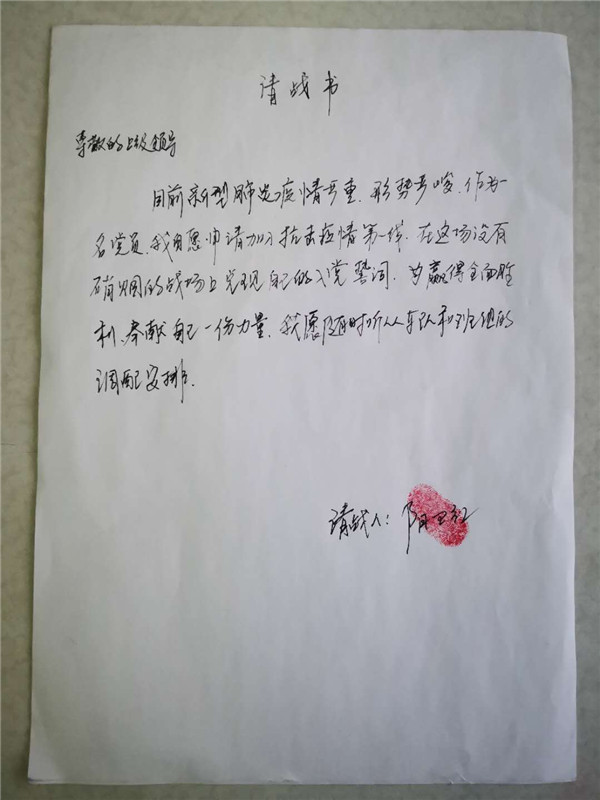 请战书
尊敬的上级领导
目前新型肺炎疫情严重,形势严峻,作为一
名党员,我自愿申请加入抗击疫情第一线,在这场没有
硝烟的战场上兑现自己的入党誓词,为赢得全面胜
利,奉献自己一份力量,我愿随时听从车队和班组的
调配安排.
请战人:阳卫红